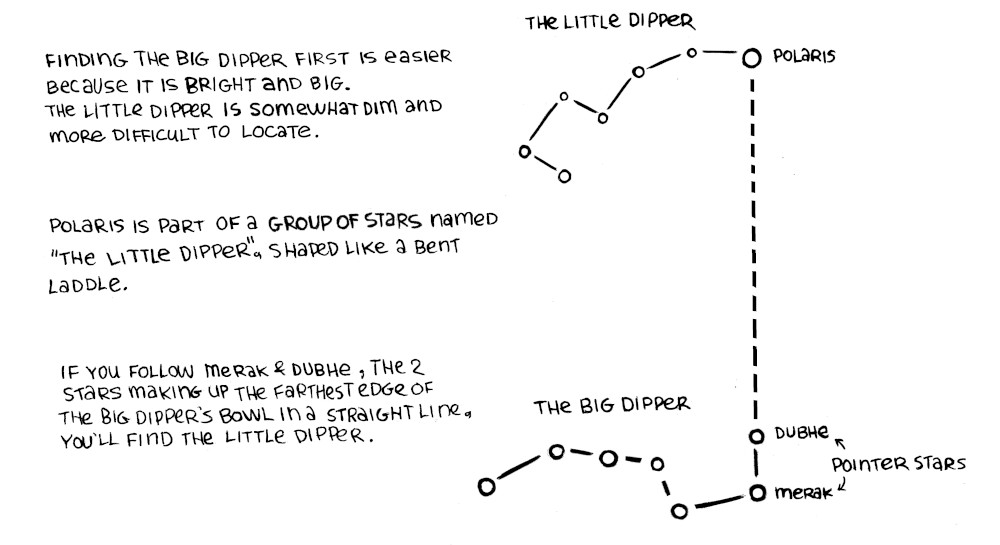 THE LITTLE DIPPER
POLARIS
FINDING THE BIG DIPPER FIRST IS easIer
BecaUSE IT IS BRIGHT anD BIG.
THE LITTLe DIPPER IS SomewHaT DIM anD
more DIFFICULT TO LOCaTe.
POLARIS IS PaRT OF a GROUP OF STaRS nameD
"THE LITTLe DIPPeR", SHaPeD LIKe a BenT
LaDDLe.
IF YOU FOLLOW meraK & DUBHe, THE 2
STaRS maKInG UP THE FaRTHeST eDGe OF
THE BIG DIPPeR'S BOWL In a STRaIGHT LIne,
YOU'LL FInD THE LITTLe DIPPeR.
THE BIG DIPPER
DUBHe
POInTER STaRS
meraK